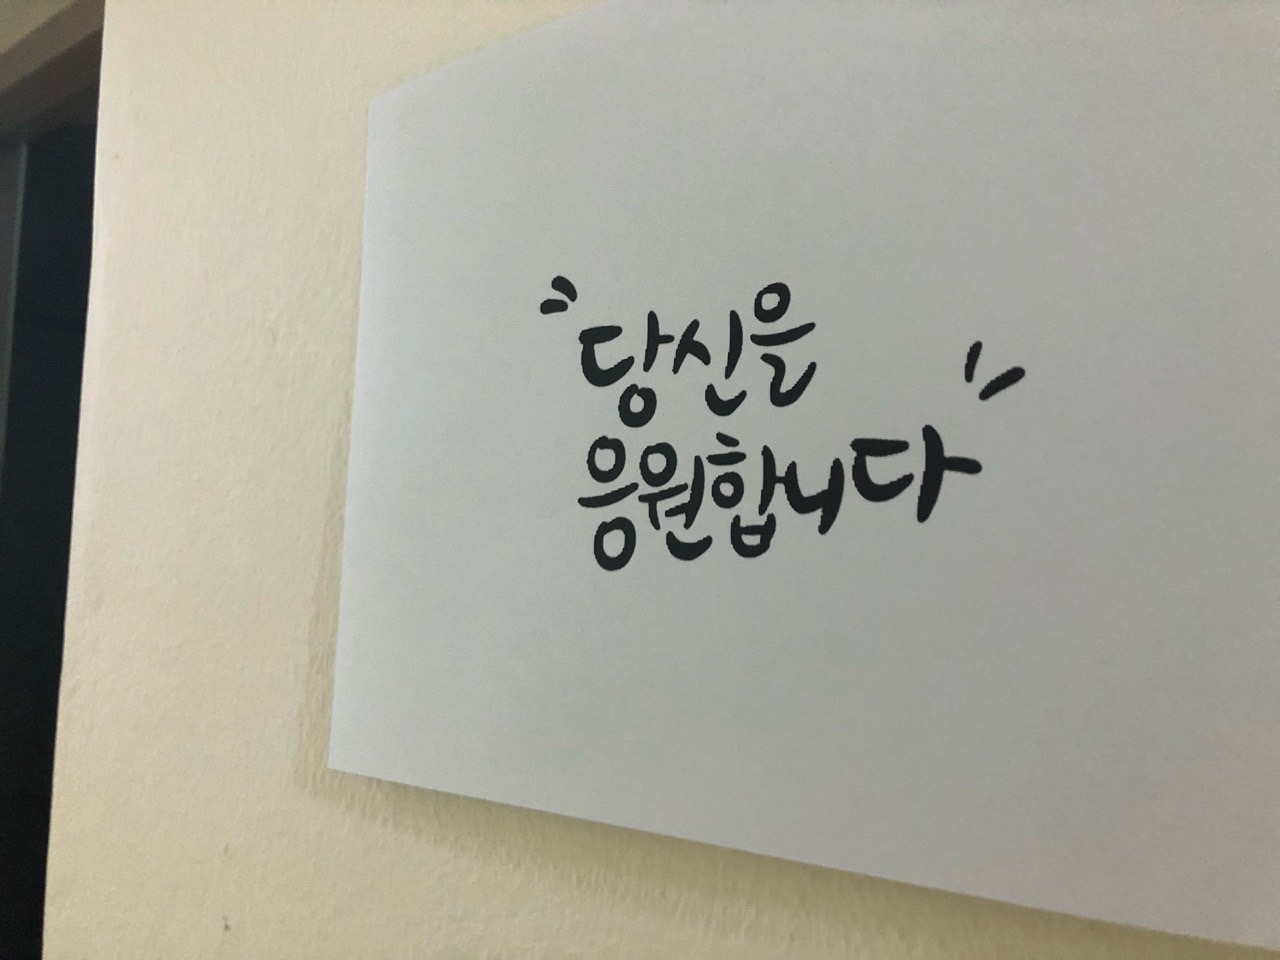 "당신을
응원합니다"